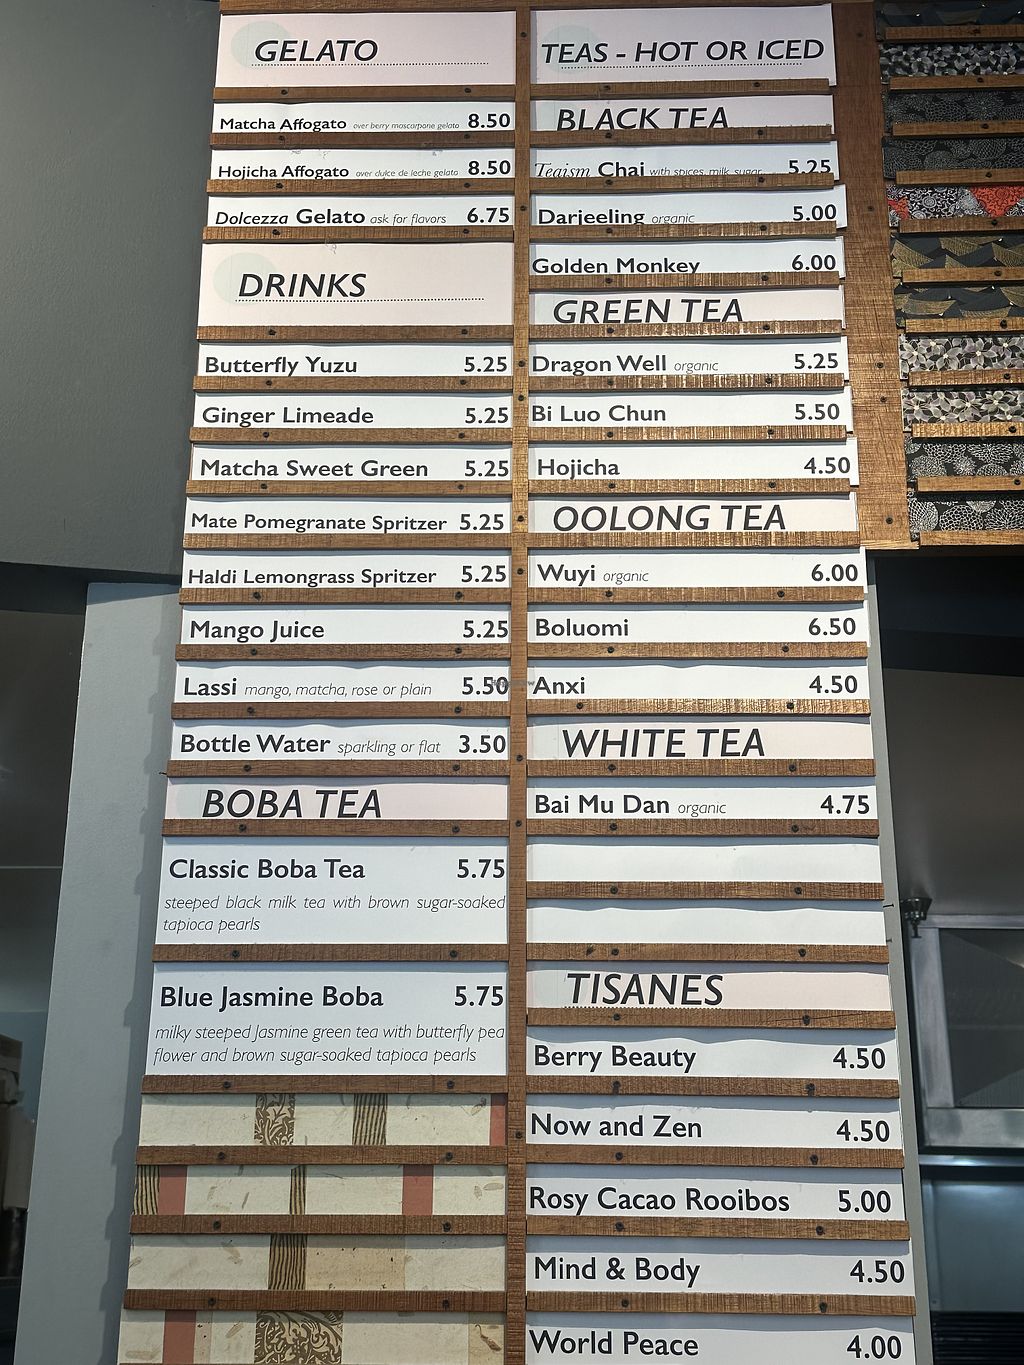 GELATO
Matcha Affogato over berry mascarpone gelato 8.50
Hojicha Affogato over dulce de leche gelato 8.50
Dolcezza Gelato ask for flavors 6.75
DRINKS
Butterfly Yuzu 5.25
Ginger Limeade 5.25
Matcha Sweet Green 5.25
Mate Pomegranate Spritzer 5.25
Haldi Lemongrass Spritzer 5.25
Mango Juice 5.25
Lassi mango, matcha, rose or plain 5.50
Bottle Water sparkling or flat 3.50
BOBA TEA
Classic Boba Tea 5.75
steeped black milk tea with brown sugar-soaked
tapioca pearls
Blue Jasmine Boba 5.75
milky steeped Jasmine green tea with butterfly pea
flower and brown sugar-soaked tapioca pearls
TEAS - HOT OR ICED
BLACK TEA
Teaism Chai with spices, milk, sugar 5.25
Darjeeling organic 5.00
Golden Monkey 6.00
GREEN TEA
Dragon Well organic 5.25
Bi Luo Chun 5.50
Hojicha 4.50
OOLONG TEA
Wuyi organic 6.00
Boluomi 6.50
Anxi 4.50
WHITE TEA
Bai Mu Dan organic 4.75
TISANES
Berry Beauty 4.50
Now and Zen 4.50
Rosy Cacao Rooibos 5.00
Mind & Body 4.50
World Peace 4.00